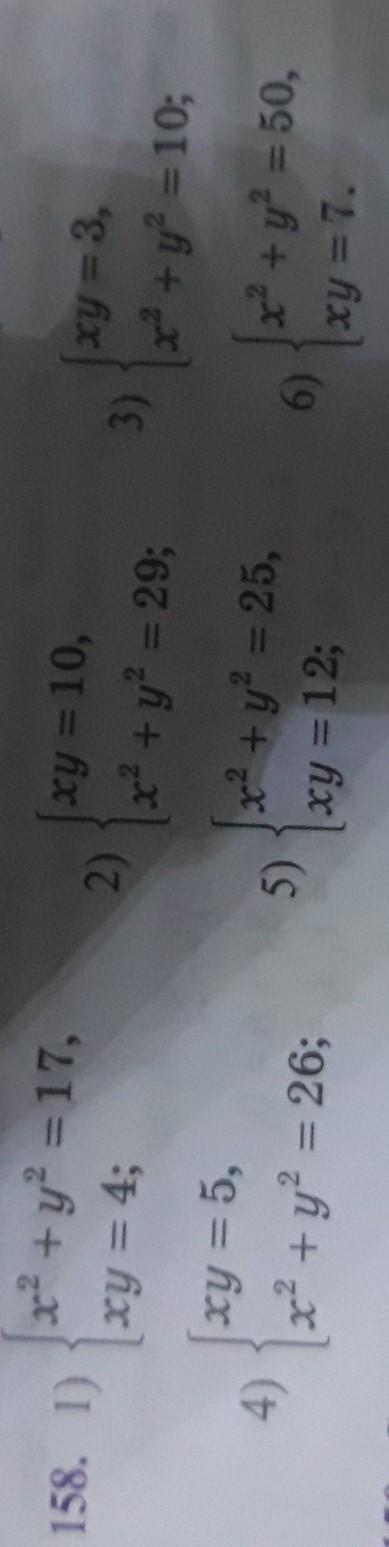 158. 1) { x² + y² = 17, xy = 4;
2) { xy = 10, x² + y² = 29;
3) { xy = 3, x² + y² = 10;
4) { xy = 5, x² + y² = 26;
5) { x² + y² = 25, xy = 12;
6) { x² + y² = 50, xy = 7.